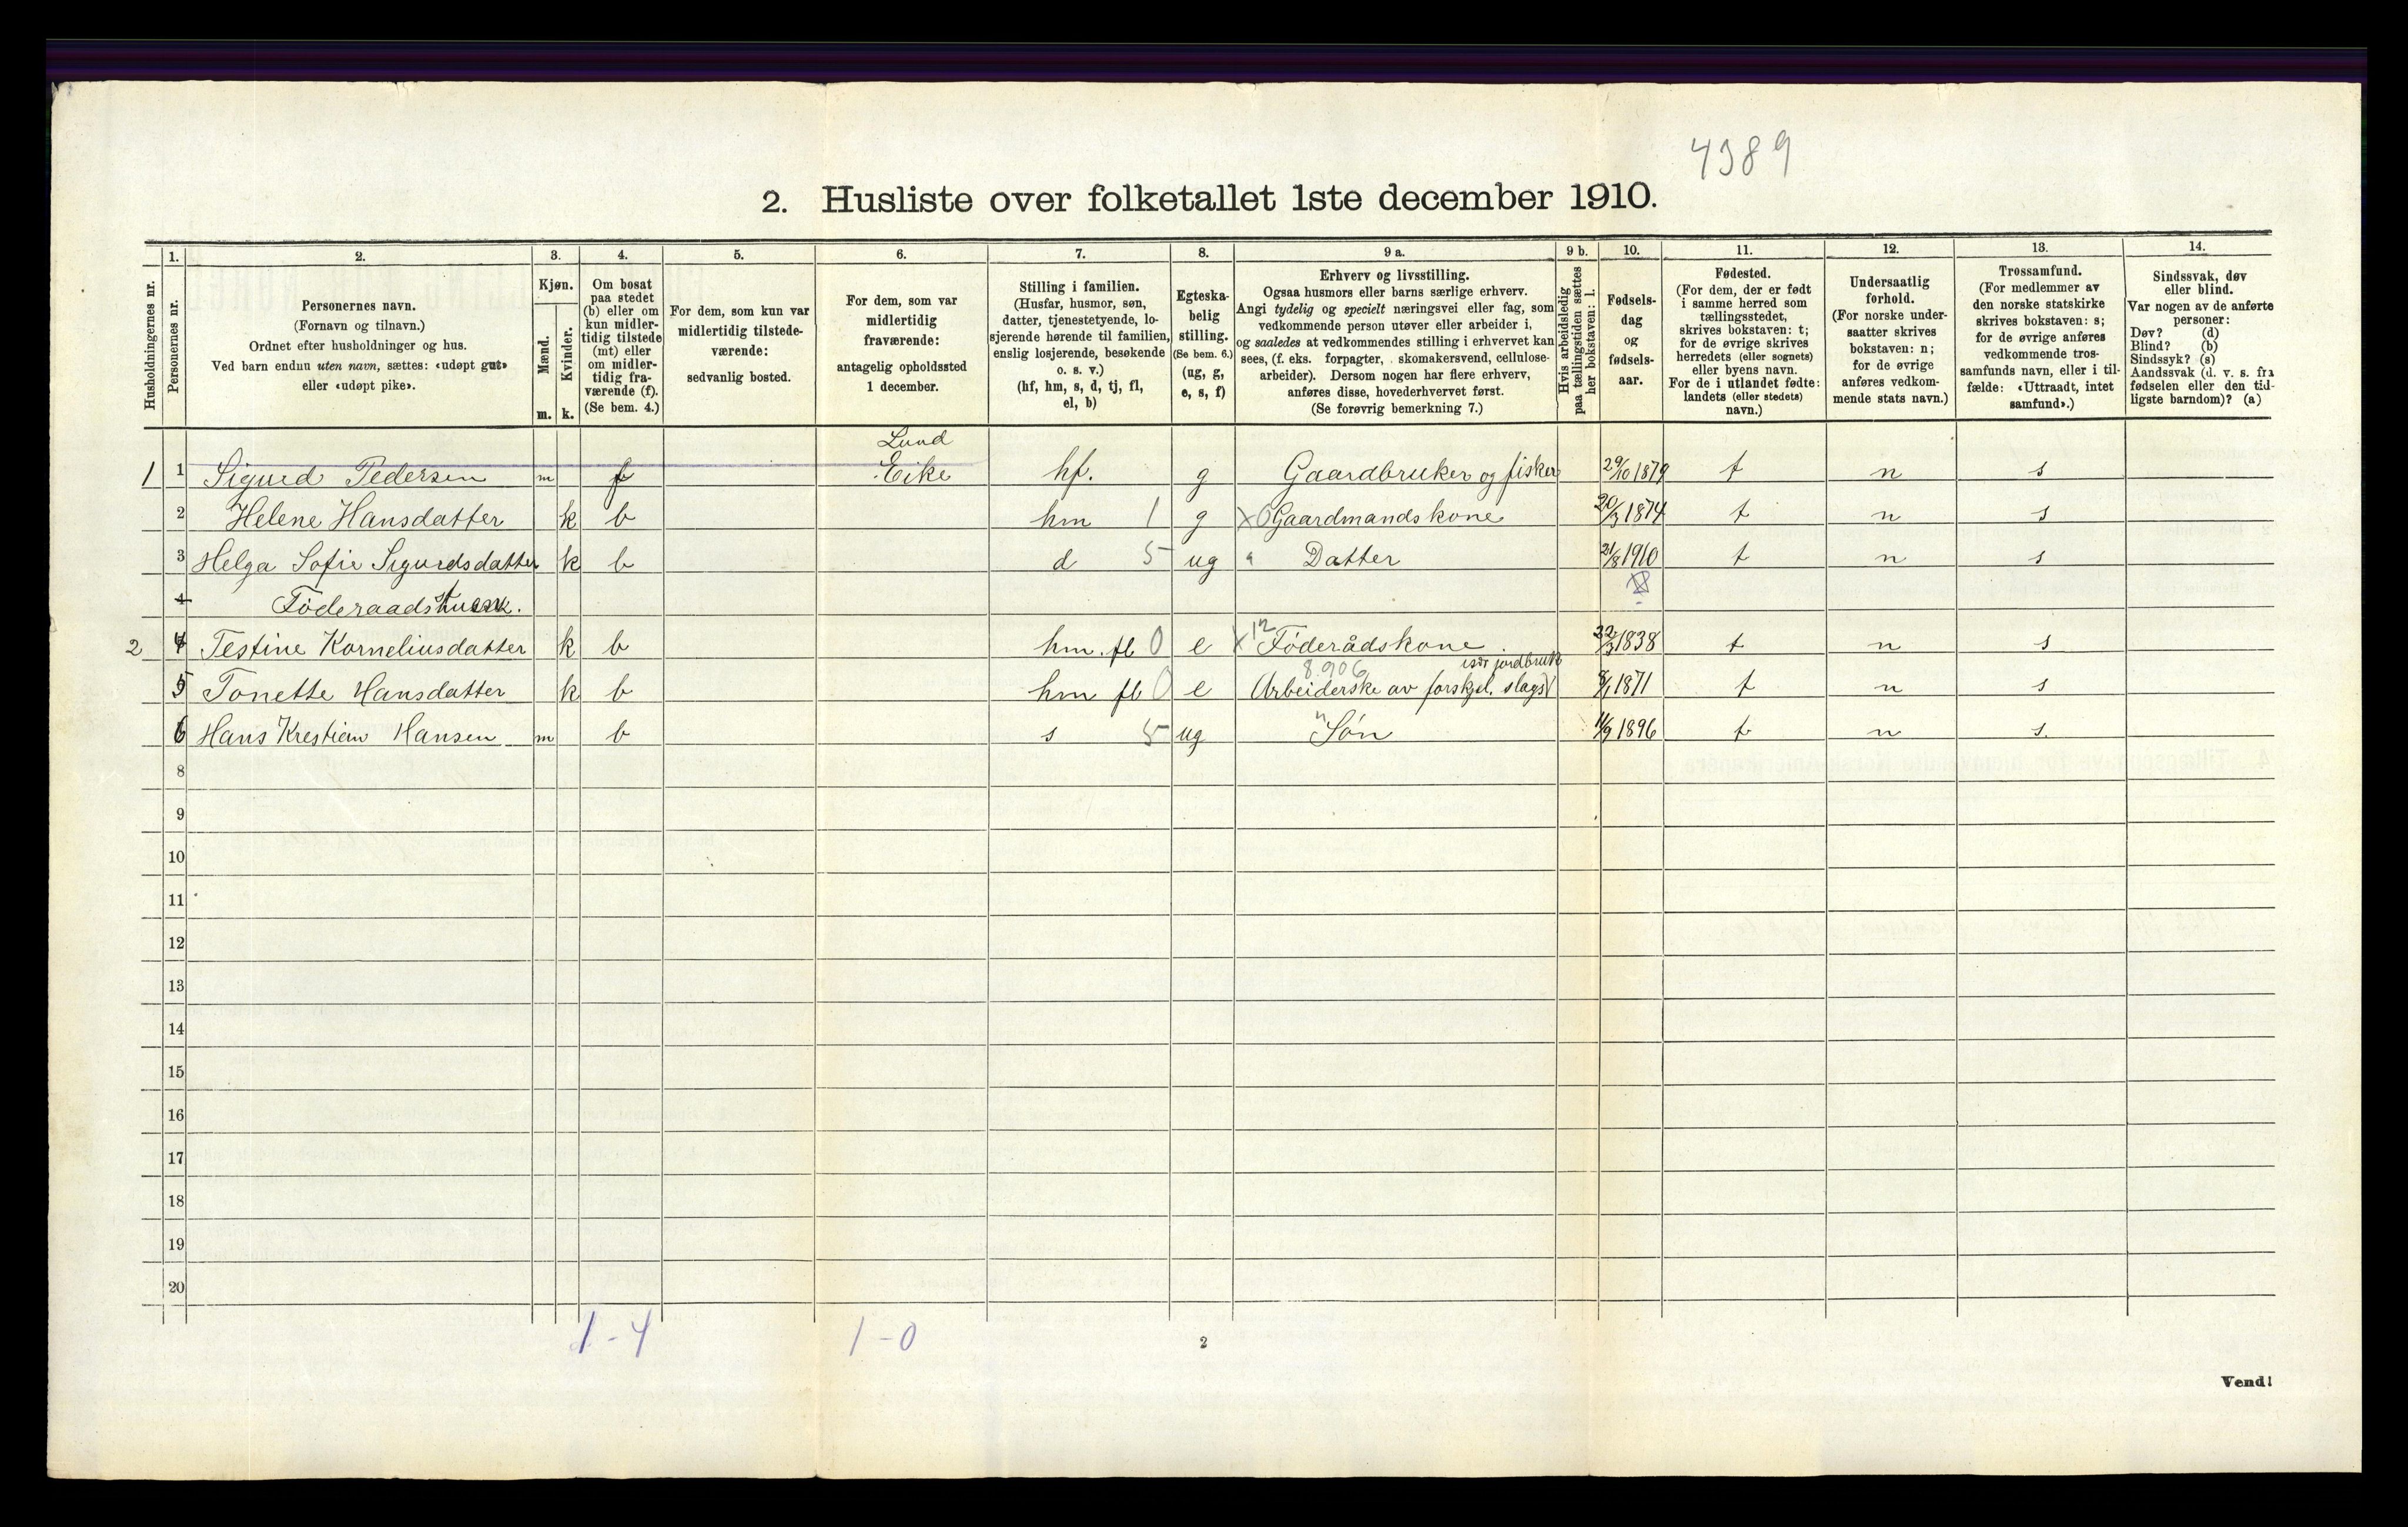 4389
2. Husliste over folketallet 1ste december 1910.
Husholdningernes nr.
1. Personernes nr.
2. Personernes navn. (Fornavn og tilnavn.) Ordnet efter husholdninger og hus. Ved barn endnu uten navn, sættes: «udøpt gut» eller «udøpt pike».
3. Kjøn. Mænd. m. Kvinder. k.
4. Om bosat paa stedet (b) eller om kun midlertidig tilstede (mt) eller om midlertidig fraværende (f). (Se bem. 4.)
5. For dem, som kun var midlertidig tilstedeværende: sedvanlig bosted.
6. For dem, som var midlertidig fraværende: antagelig opholdssted 1 december.
7. Stilling i familien. (Husfar, husmor, søn, datter, tjenestetyende, losjerende hørende til familien, enslig losjerende, besøkende o. s. v.) (hf, hm, s, d, tj, fl, el, b)
8. Egteskabelig stilling. (Se bem. 6.) (ug, g, e, s, f)
9 a. Erhverv og livsstilling. Ogsaa husmors eller barns særlige erhverv. Angi tydelig og specielt næringsvei eller fag, som vedkommende person utøver eller arbeider i, og saaledes at vedkommendes stilling i erhvervet kan sees, (f. eks. forpagter, skomakersvend, cellulosearbeider). Dersom nogen har flere erhverv, anføres disse, hovederhvervet først. (Se forøvrig bemerkning 7.)
9 b. Hvis arbeidsledig paa tællingstiden sættes her bokstaven: l.
10. Fødselsdag og fødselsaar.
11. Fødested. (For dem, der er født i samme herred som tællingsstedet, skrives bokstaven: t; for de øvrige skrives herredets (eller sognets) eller byens navn. For de i utlandet fødte: landets (eller stedets) navn.)
12. Undersaatlig forhold. (For norske undersaatter skrives bokstaven: n; for de øvrige anføres vedkommende stats navn.)
13. Trossamfund. (For medlemmer av den norske statskirke skrives bokstaven: s; for de øvrige anføres vedkommende trossamfunds navn, eller i tilfælde: «Uttraadt, intet samfund».)
14. Sindssvak, døv eller blind. Var nogen av de anførte personer: Døv? (d) Blind? (b) Sindssyk? (s) Aandssvak (d. v. s. fra fødselen eller den tidligste barndom)? (a)
Lund
1 1 Sigurd Pedersen m f Eike hf. g Gaardbruker og fisker 29/10 1879 t n s
2 Helene Hansdatter k b hm 1 g x0 Gaardmandskone 20/3 1874 t n s
3 Helga Sofie Sigurdsdatter k b d 5 ug " Datter 21/8 1910 t n s
4 Føderaadstuen.
2 4 Testine Korneliusdatter k b hm. fl 0 e x 12 Føderådskone 22/3 1838 t n s
8.906 især jordbruk
5 Tonette Hansdatter k b hm fl 0 e Arbeiderske av forskjel. slags 8/1 1871 t n s
6 Hans Krestian Hansen m b s 5 ug " Søn 11/9 1896 t n s.
8
9
10
11
12
13
14
15
16
17
18
19
20
1-4 1-0
2
Vend!